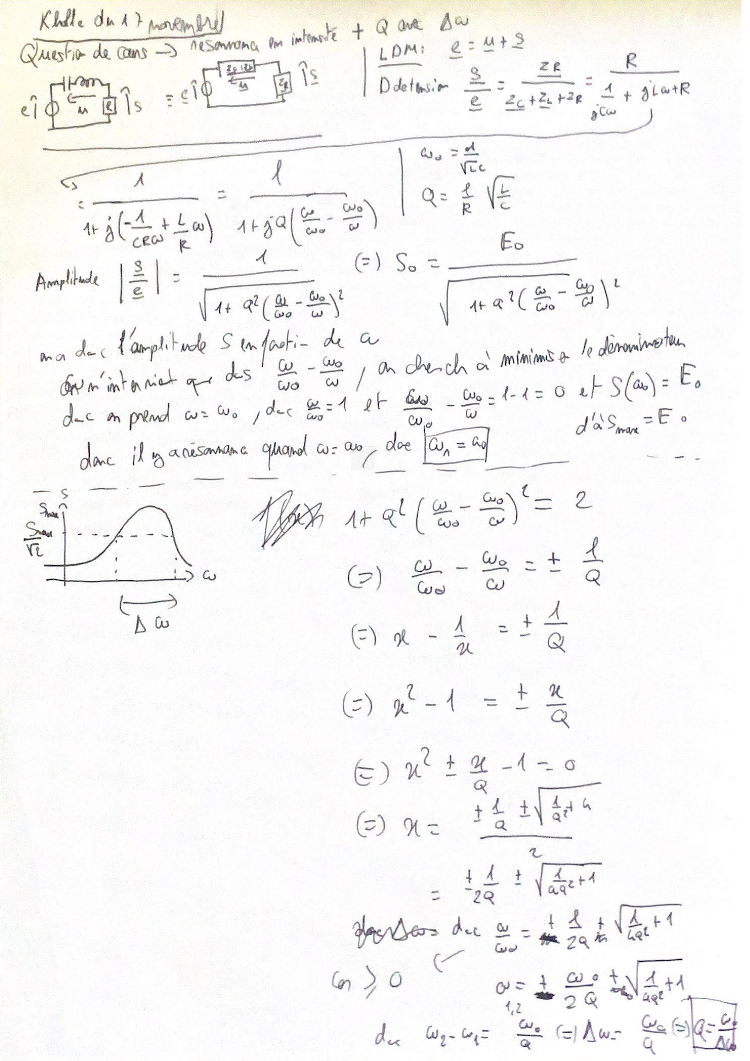 Khôlle du 17 novembre
Question de cours → résonnance en intensité + Q avec Δω
LDM: e = u + s
D de tension s/e = Z_R/(Z_C + Z_L + Z_R) = R/(1/(jCω) + jLω + R)
e u R s = e u Z_R s
= 1/(1 + j(-1/(CRω) + L/R ω)) = 1/(1 + jQ(ω/ω₀ - ω₀/ω))
ω₀ = 1/√LC
Q = 1/R √(L/C)
Amplitude |s/e| = 1/√(1 + Q²(ω/ω₀ - ω₀/ω)²) (=) S₀ = E₀/√(1 + Q²(ω/ω₀ - ω₀/ω)²)
on a donc l'amplitude S en fonction de ω
ω n'intervient que dans ω/ω₀ - ω₀/ω, on cherch à minimiser le dénominateur
donc on prend ω = ω₀, donc ω/ω₀ = 1 et ω/ω₀ - ω₀/ω = 1-1 = 0 et S(ω₀) = E₀
d'où Smax = E₀
donc il y a résonnance quand ω = ω₀, donc ωr = ω₀
S
Smax
Smax/√2
ω
Δω
1 + Q²(ω/ω₀ - ω₀/ω)² = 2
(=) ω/ω₀ - ω₀/ω = ± 1/Q
(=) x - 1/x = ± 1/Q
(=) x² - 1 = ± x/Q
(=) x² ± x/Q - 1 = 0
(=) x = (± 1/Q ± √(1/Q² + 4))/2
= ± 1/2Q ± √(1/4Q² + 1)
donc ω/ω₀ = ± 1/2Q + √(1/4Q² + 1)
ω ≥ 0
ω₁,₂ = ± ω₀/2Q + ω₀√(1/4Q² + 1)
donc ω₂ - ω₁ = ω₀/Q (=) Δω = ω₀/Q (=) Q = ω₀/Δω